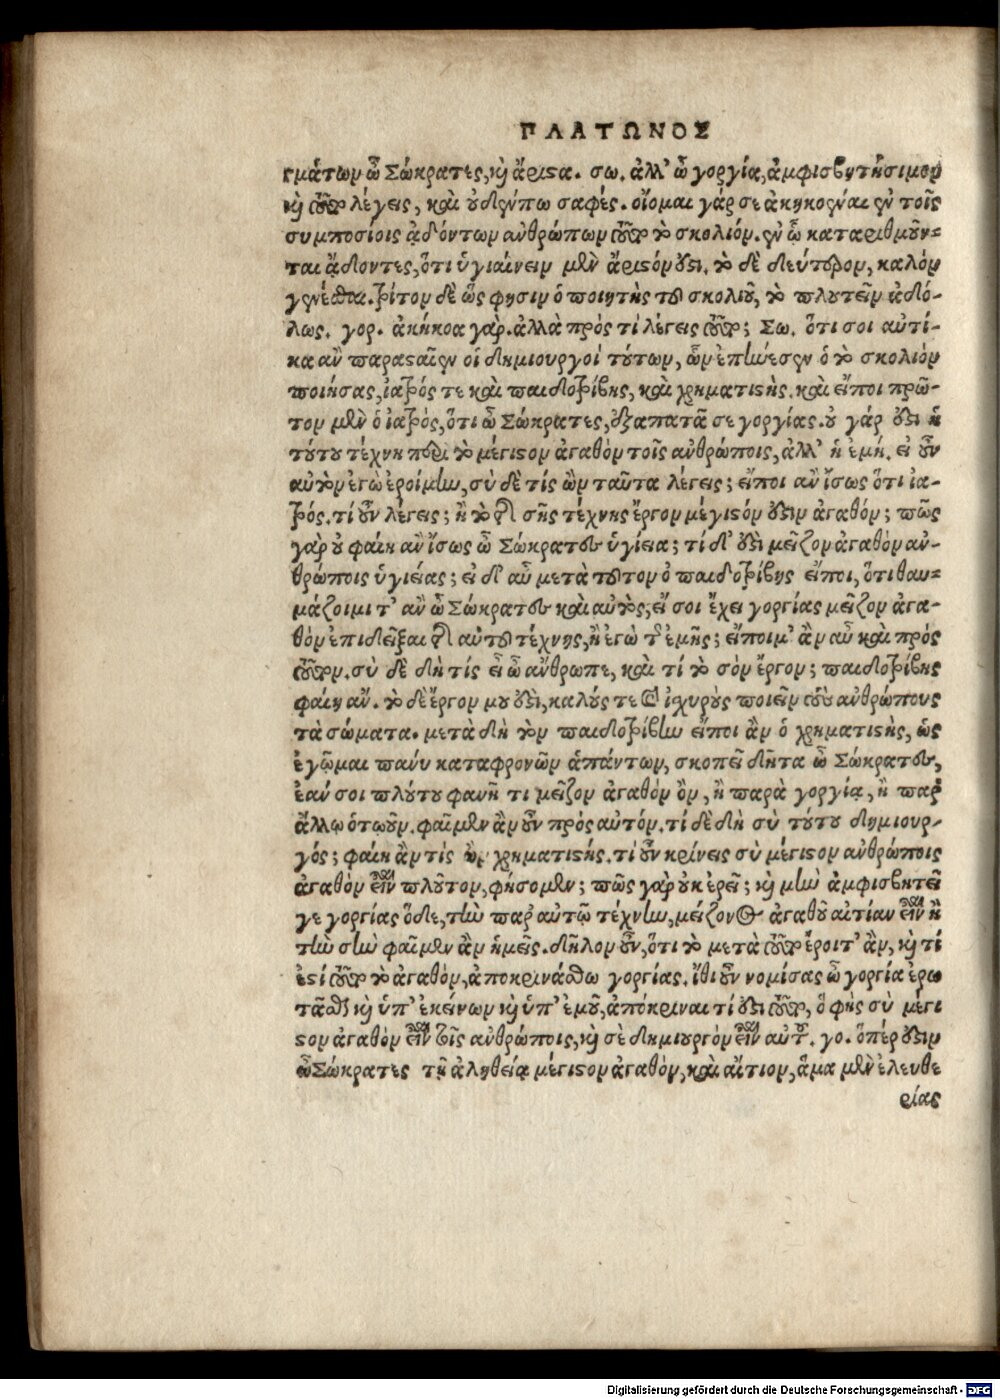 ΠΛΑΤΩΝΟΣ
γμάτων ὦ Σώκρατες, καὶ ἄριστα. σω. ἀλλ' ὦ γοργία, ἀμφισβητήσιμον
καὶ τοῦτο λέγεις, καὶ οὐδέπω σαφές. οἴομαι γάρ σε ἀκηκοέναι ἐν τοῖς
συμποσίοις ᾀδόντων ἀνθρώπων τοῦτο τὸ σκολιόν. ἐν ᾧ καταριθμοῦν-
ται ᾄδοντες, ὅτι ὑγιαίνειν μὲν ἄριστόν ἐστι. τὸ δὲ δεύτερον, καλὸν
γενέσθαι. τρίτον δὲ ὥς φησιν ὁ ποιητὴς τοῦ σκολιοῦ, τὸ πλουτεῖν ἀδό-
λως. γορ. ἀκήκοα γὰρ. ἀλλὰ πρὸς τί λέγεις τοῦτο; Σω. ὅτι σοι αὐτί-
κα ἂν παρασταῖεν οἱ δημιουργοὶ τούτων, ὧν ἐπῄνεσεν ὁ τὸ σκολιὸν
ποιήσας, ἰατρός τε καὶ παιδοτρίβης, καὶ χρηματιστής. καὶ εἴποι πρῶ-
τον μὲν ὁ ἰατρός, ὅτι ὦ Σώκρατες, ἐξαπατᾷ σε γοργίας. οὐ γάρ ἐστι ἡ
τούτου τέχνη περὶ τὸ μέγιστον ἀγαθὸν τοῖς ἀνθρώποις, ἀλλ' ἡ ἐμή. εἰ οὖν
αὐτὸν ἐγὼ ἐροίμην, σὺ δὲ τίς ὢν ταῦτα λέγεις; εἴποι ἂν ἴσως ὅτι ἰα-
τρός. τί οὖν λέγεις; ἢ τὸ τῆς σῆς τέχνης ἔργον μέγιστόν ἐστιν ἀγαθόν; πῶς
γὰρ οὐ φαίη ἂν ἴσως ὦ Σώκρατες ὑγίεια; τί δ' ἐστὶ μεῖζον ἀγαθὸν ἀν-
θρώποις ὑγιείας; εἰ δ' αὖ μετὰ τοῦτον ὁ παιδοτρίβης εἴποι, ὅτι θαυ-
μάζοιμι τ' ἂν ὦ Σώκρατες καὶ αὐτὸς, εἴ σοι ἔχει γοργίας μεῖζον ἀγα-
θὸν ἐπιδεῖξαι τῆς αὐτοῦ τέχνης, ἢ ἐγὼ τ̃ ἐμῆς; εἴποιμ' ἂν αὖ καὶ πρὸς
τοῦτον. σὺ δὲ δὴ τίς εἶ ὦ ἄνθρωπε, καὶ τί τὸ σὸν ἔργον; παιδοτρίβης
φαίη ἄν. τὸ δὲ ἔργον μου ἐστὶ, καλούς τε καὶ ἰσχυροὺς ποιεῖν τοὺς ἀνθρώπους
τὰ σώματα. μετὰ δὴ τὸν παιδοτρίβην εἴποι ἂν ὁ χρηματιστής, ὡς
ἐγᾦμαι πάνυ καταφρονῶν ἁπάντων, σκοπεῖ δῆτα ὦ Σώκρατες,
ἐάν σοι πλούτου φανῇ τι μεῖζον ἀγαθὸν ὂν, ἢ παρὰ γοργίᾳ, ἢ παρ'
ἄλλῳ ὁτῳοῦν. φαῖμεν ἂν οὖν πρὸς αὐτόν. τί δὲ δὴ σὺ τούτου δημιουρ-
γός; φαίη ἂν τίς ὢν χρηματιστής. τί οὖν κρίνεις σὺ μέγιστον ἀνθρώποις
ἀγαθὸν εἶναι πλοῦτον, φήσομεν; πῶς γὰρ οὐκ ἐρεῖ; καὶ μὴν ἀμφισβητεῖ
γε γοργίας ὅδε, τὴν παρ' αὐτῷ τέχνην, μείζονος ἀγαθοῦ αἰτίαν εἶναι ἢ
τὴν σὴν φαῖμεν ἂν ἡμεῖς. δῆλον οὖν, ὅτι τὸ μετὰ τοῦτο ἔροιτ' ἂν, καὶ τί
ἐστί τοῦτο τὸ ἀγαθὸν, ἀποκρινάσθω γοργίας. ἴθι οὖν νομίσας ὦ γοργία ἐρω
τᾶσθαι καὶ ὑπ' ἐκείνων καὶ ὑπ' ἐμοῦ, ἀπόκριναι τί ἐστι τοῦτο, ὃ φῂς σὺ μέγι
στον ἀγαθὸν εἶναι τοῖς ἀνθρώποις, καὶ σὲ δημιουργὸν εἶναι αὐτοῦ. γο. ὅπερ ἐστιν
ὦ Σώκρατες τῇ ἀληθείᾳ μέγιστον ἀγαθὸν, καὶ αἴτιον, ἅμα μὲν ἐλευθε
ρίας
Digitalisierung gefördert durch die Deutsche Forschungsgemeinschaft - DFG